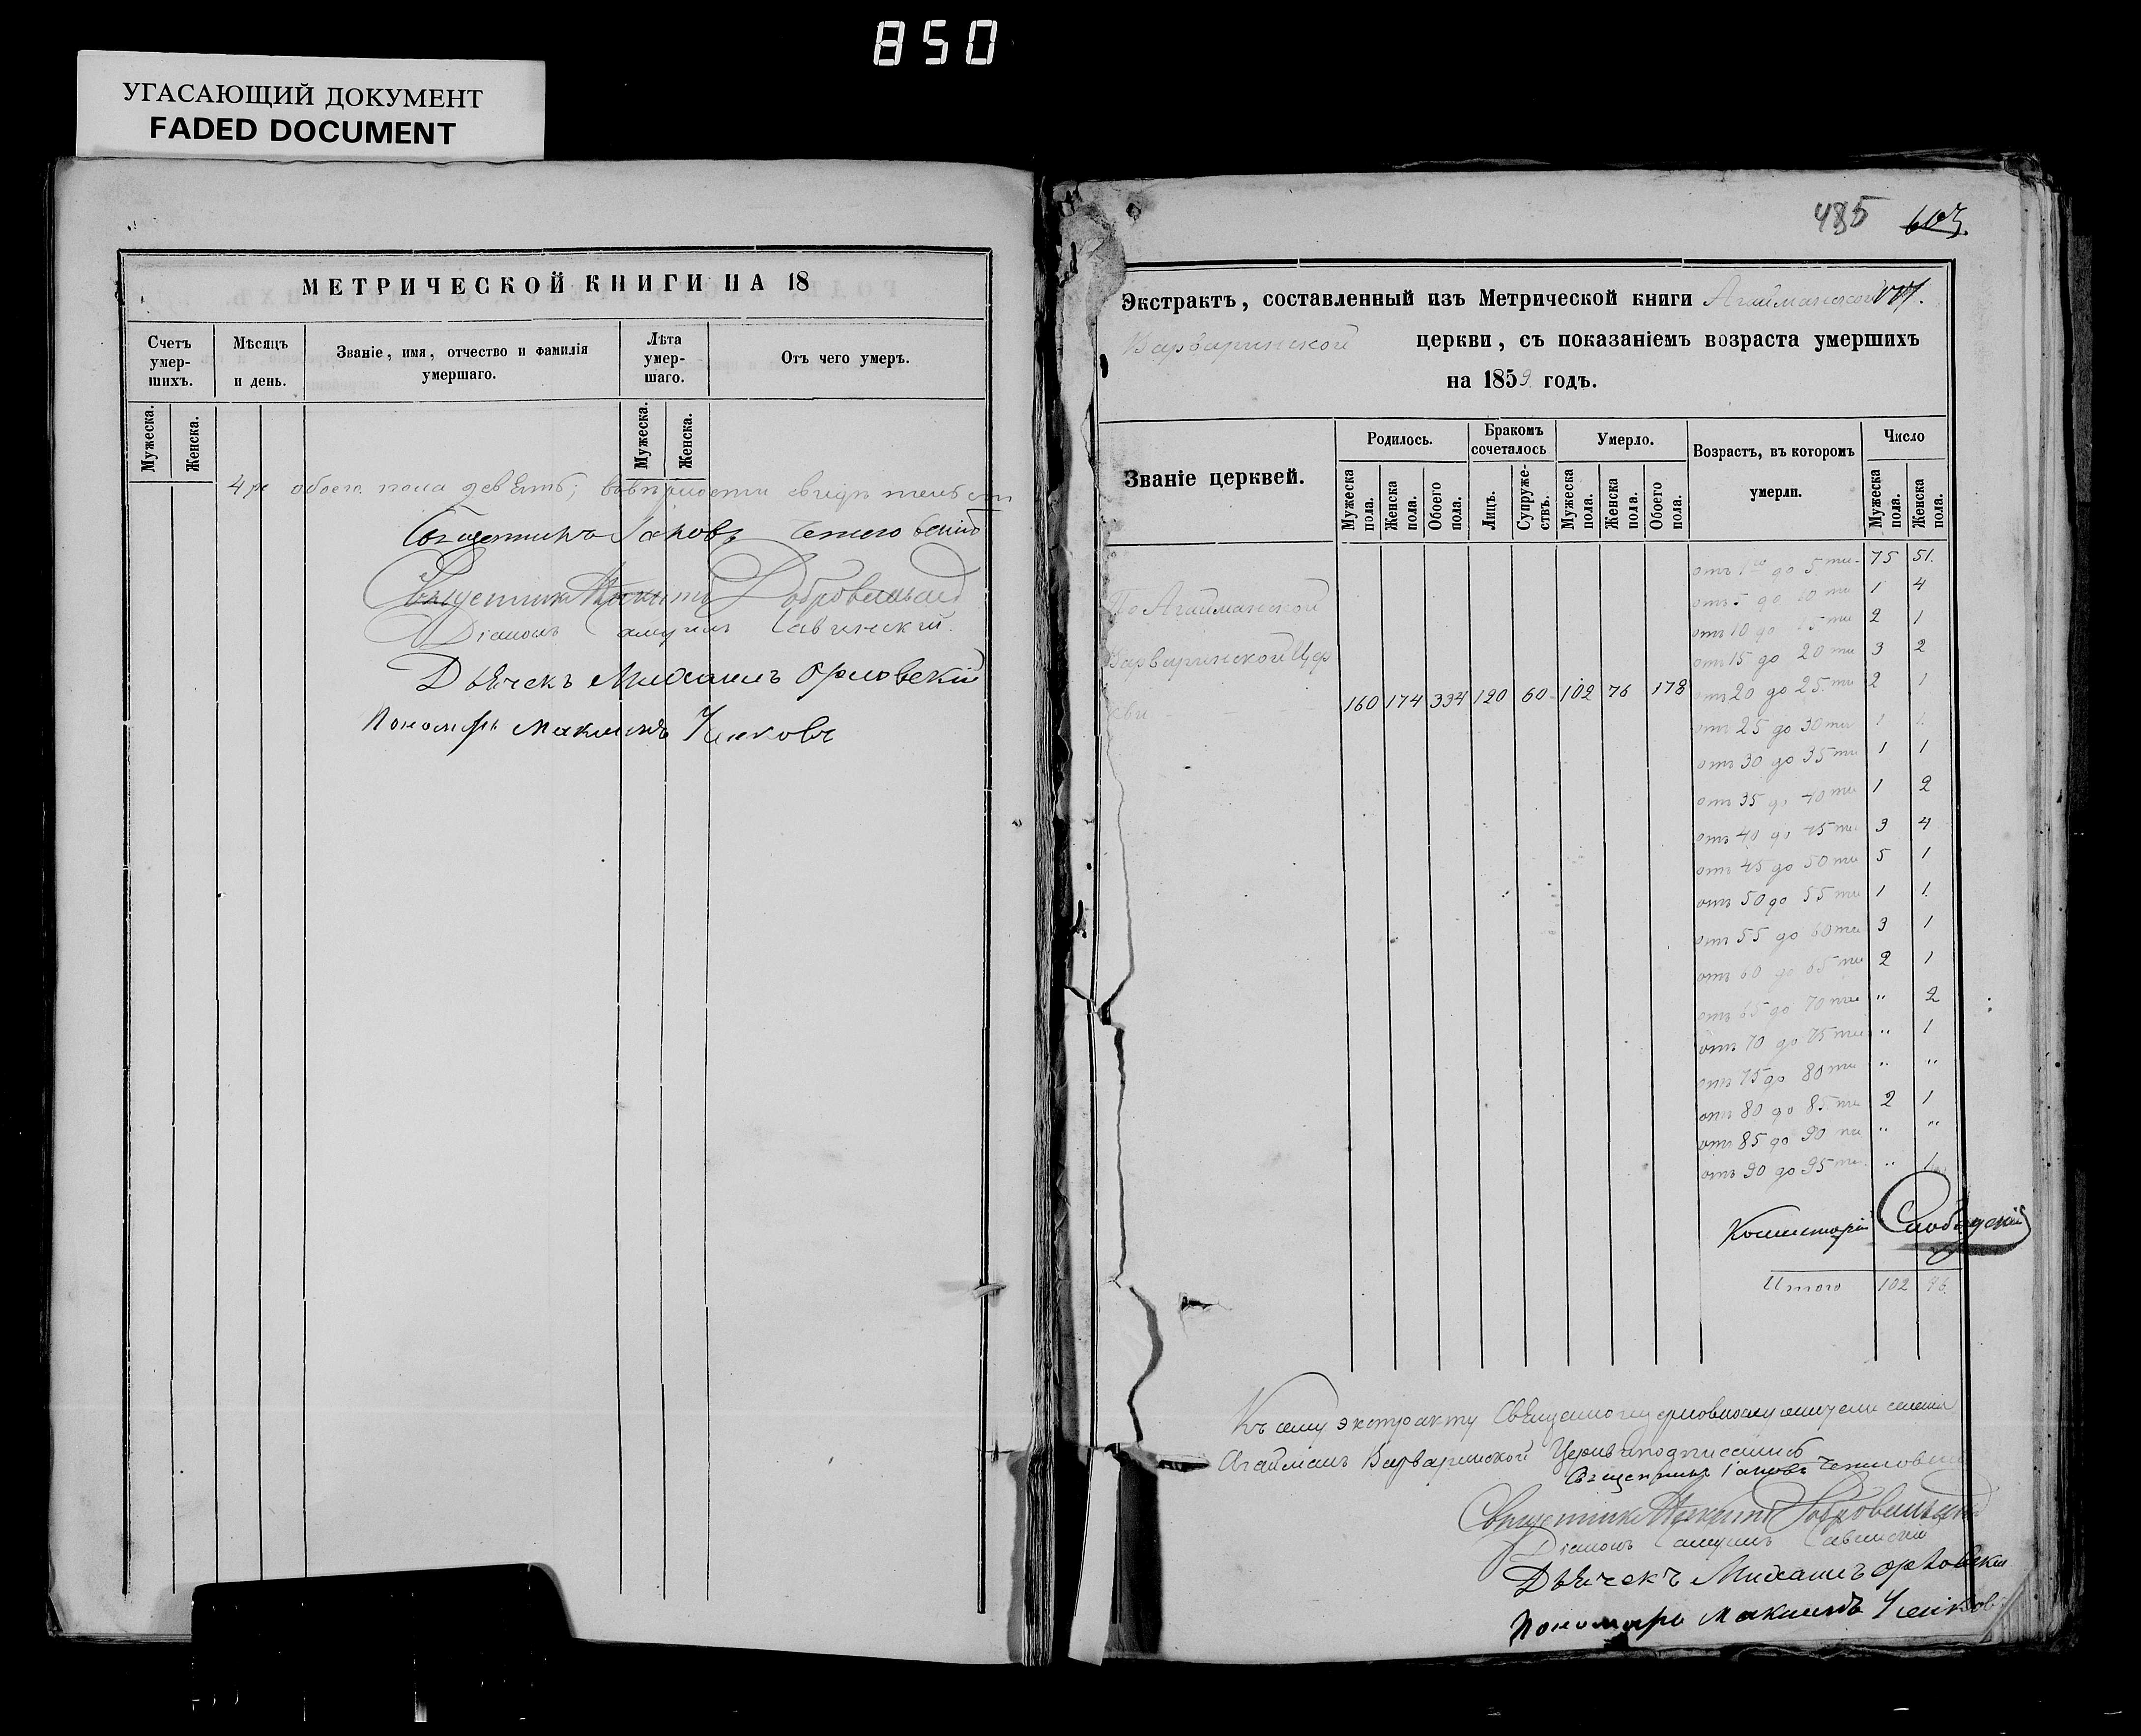 850
УГАСАЮЩИЙ ДОКУМЕНТ
FADED DOCUMENT
МЕТРИЧЕСКОЙ КНИГИ НА 18
Счетъ умер-шихъ.
Мѣсяцъ и день.
Званіе, имя, отчество и фамилія умершаго.
Лѣта умер-шаго.
Отъ чего умеръ.
Мужеска. Женска. Мужеска. Женска.
обоего пола девять;
Священникъ Іаковъ
Священникъ Никита
Діаконъ Самуилъ Савинский.
Дьячекъ Михаилъ Орловскій
Пономарь Максимъ
485 607.
Экстрактъ, составленный изъ Метрической книги Агайманской
Варваринской церкви, съ показаніемъ возраста умершихъ
на 1859 годъ.
Званіе церквей.
Родилось.
Бракомъ сочеталось
Умерло.
Возрастъ, въ которомъ умерли.
Число
Мужеска пола. Женска пола. Обоего пола. Лицъ. Супруже-ствъ. Мужеска пола. Женска пола. Обоего пола. Мужеска пола. Женска пола.
По Агайманской
Варваринской Цер
кви
160 174 334 120 60 102 76 178
отъ 1го до 5ти 75 51.
отъ 5 до 10ти 1 4
отъ 10 до 15ти 2 1
отъ 15 до 20ти 3 2
отъ 20 до 25ти 2 1
отъ 25 до 30ти 1 1.
отъ 30 до 35ти 1 1
отъ 35 до 40ти 1 2
отъ 40 до 45ти 3 4
отъ 45 до 50ти 5 1
отъ 50 до 55ти 1 1.
отъ 55 до 60ти 3 1
отъ 60 до 65ти 2 1
отъ 65 до 70ти " 2
отъ 70 до 75ти " 1
отъ 75 до 80ти " "
отъ 80 до 85ти 2 1
отъ 85 до 90ти " "
отъ 90 до 95ти " 1
Итого 102 76.
Къ сему экстракту Священноцерковнослужители селенія
Агайманъ Варваринской Церкви подписались
Священникъ Іаковъ
Священникъ Никита
Діаконъ Самуилъ Савинскій
Дьячекъ Михаилъ Орловскій
Пономарь Максимъ